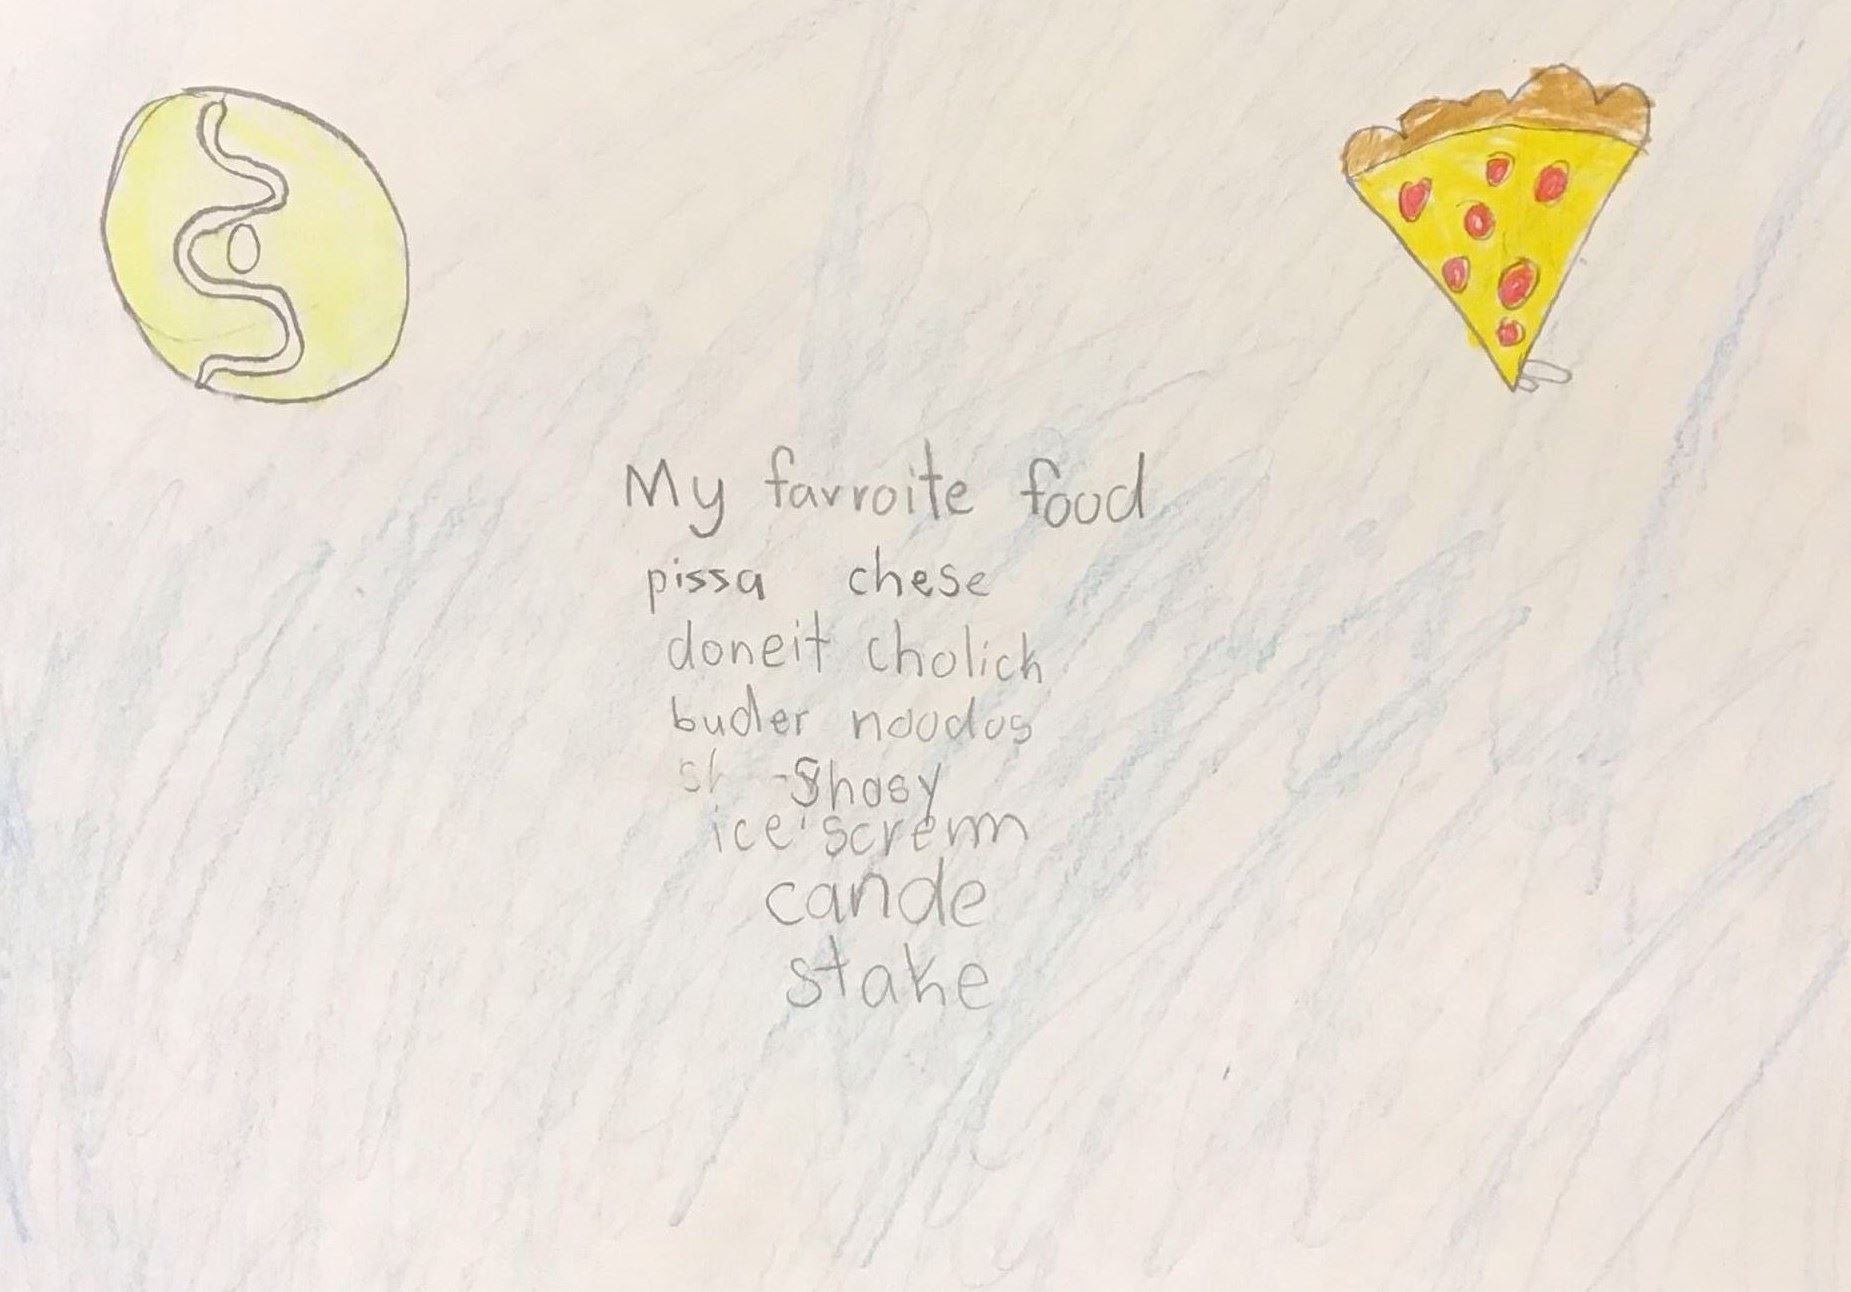 My favroite food
pissa chese
doneit cholich
budler noodos
Shosy
ice screm
cande
stake